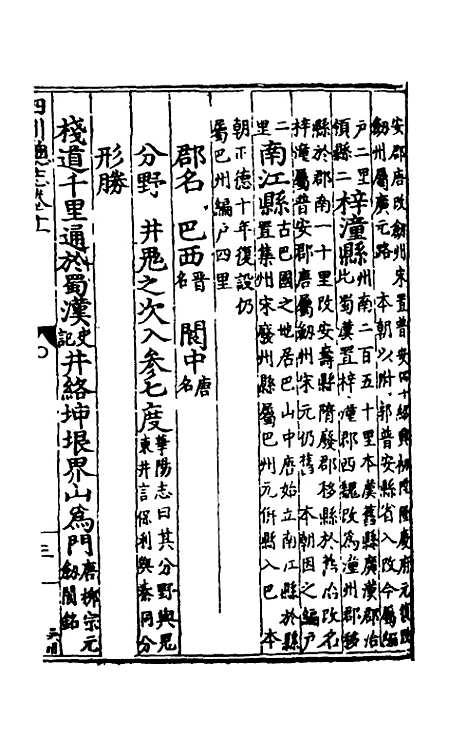 安郡唐改劍州宋置普安
劍州屬廣元路 本朝以附郭普安縣省入改今屬編
戶二里 梓潼縣 州南二百五十里本漢舊縣廣漢郡治
領縣二 此蜀漢置梓潼郡西魏改為潼州郡移
縣於郡南一十里改安壽縣隋廢郡移縣於舊治改名
梓潼屬普安郡唐屬劍州宋元仍舊 本朝因之編戶
二里 南江縣 古巴國之地居巴山中唐始立南江縣於縣
置集州宋廢州縣屬巴州元併縣入巴 本
朝正德十年復設仍
屬巴州編戶四里
郡名 巴西 晉名 閬中 唐名
分野 井鬼之次入參七度 華陽志曰其分野與鬼
東井言保利與秦同分
形勝
棧道千里通於蜀漢 史記 井絡坤垠界山為門 唐柳宗元
劍閣銘
四川總志卷十
三